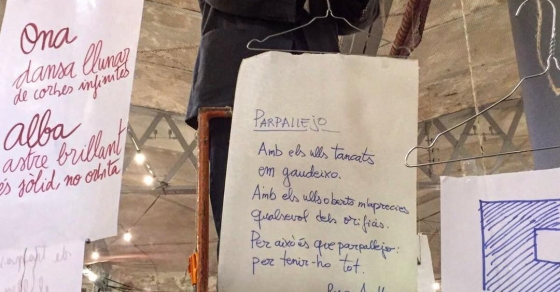 Ona
dansa llunar
de corbes infinites
Alba
astre brillant
és sòlid, no orbita
PARPALLEJO
Amb els ulls tancats
em gaudeixo.
Amb els ulls oberts m'aprecies
qualsevol dels orificis.
Per això és que parpallejo:
per tenir-ho tot.